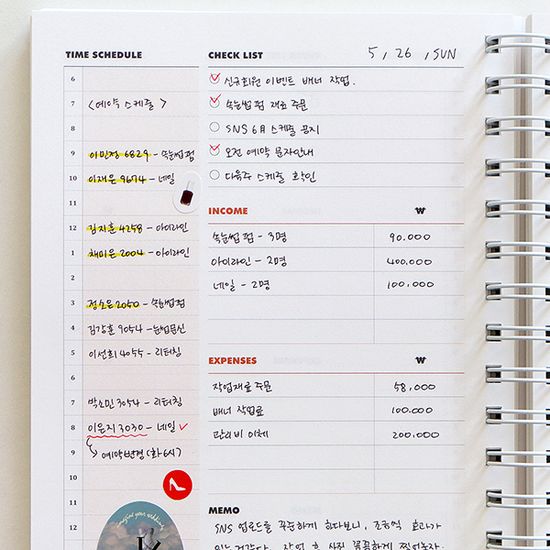 TIME SCHEDULE
6
7 <예약 스케줄>
8
9 이민정 6829 - 속눈썹펌
10 이재은 9674 - 네일
11
12 김지훈 4258 - 아이라인
1 채미은 2004 - 아이라인
2
3 정소은 2050 - 속눈썹펌
4 김강훈 9054 - 눈썹문신
5 이선희 4055 - 리터칭
6
7 박소민 3054 - 리터칭
8 이은지 3030 - 네일
9 예약변경 (화 6시)
10
11
12
imagine your wedding
CHECK LIST 5, 26, SUN
신규회원 이벤트 배너 작업.
속눈썹 펌 재료 주문
SNS 6月 스케줄 공지
오전 예약 문자안내
다음주 스케줄 확인
INCOME ₩
속눈썹 펌 - 3명 90.000
아이라인 - 2명 400,000
네일 - 2명 100,000
EXPENSES ₩
작업재료 주문 58,000
배너 작업료 100.000
관리비 이체 200,000
MEMO
SNS 업로드를 꾸준하게 하다보니, 조금씩 효과가
작업 후 사진 꼼꼼하게